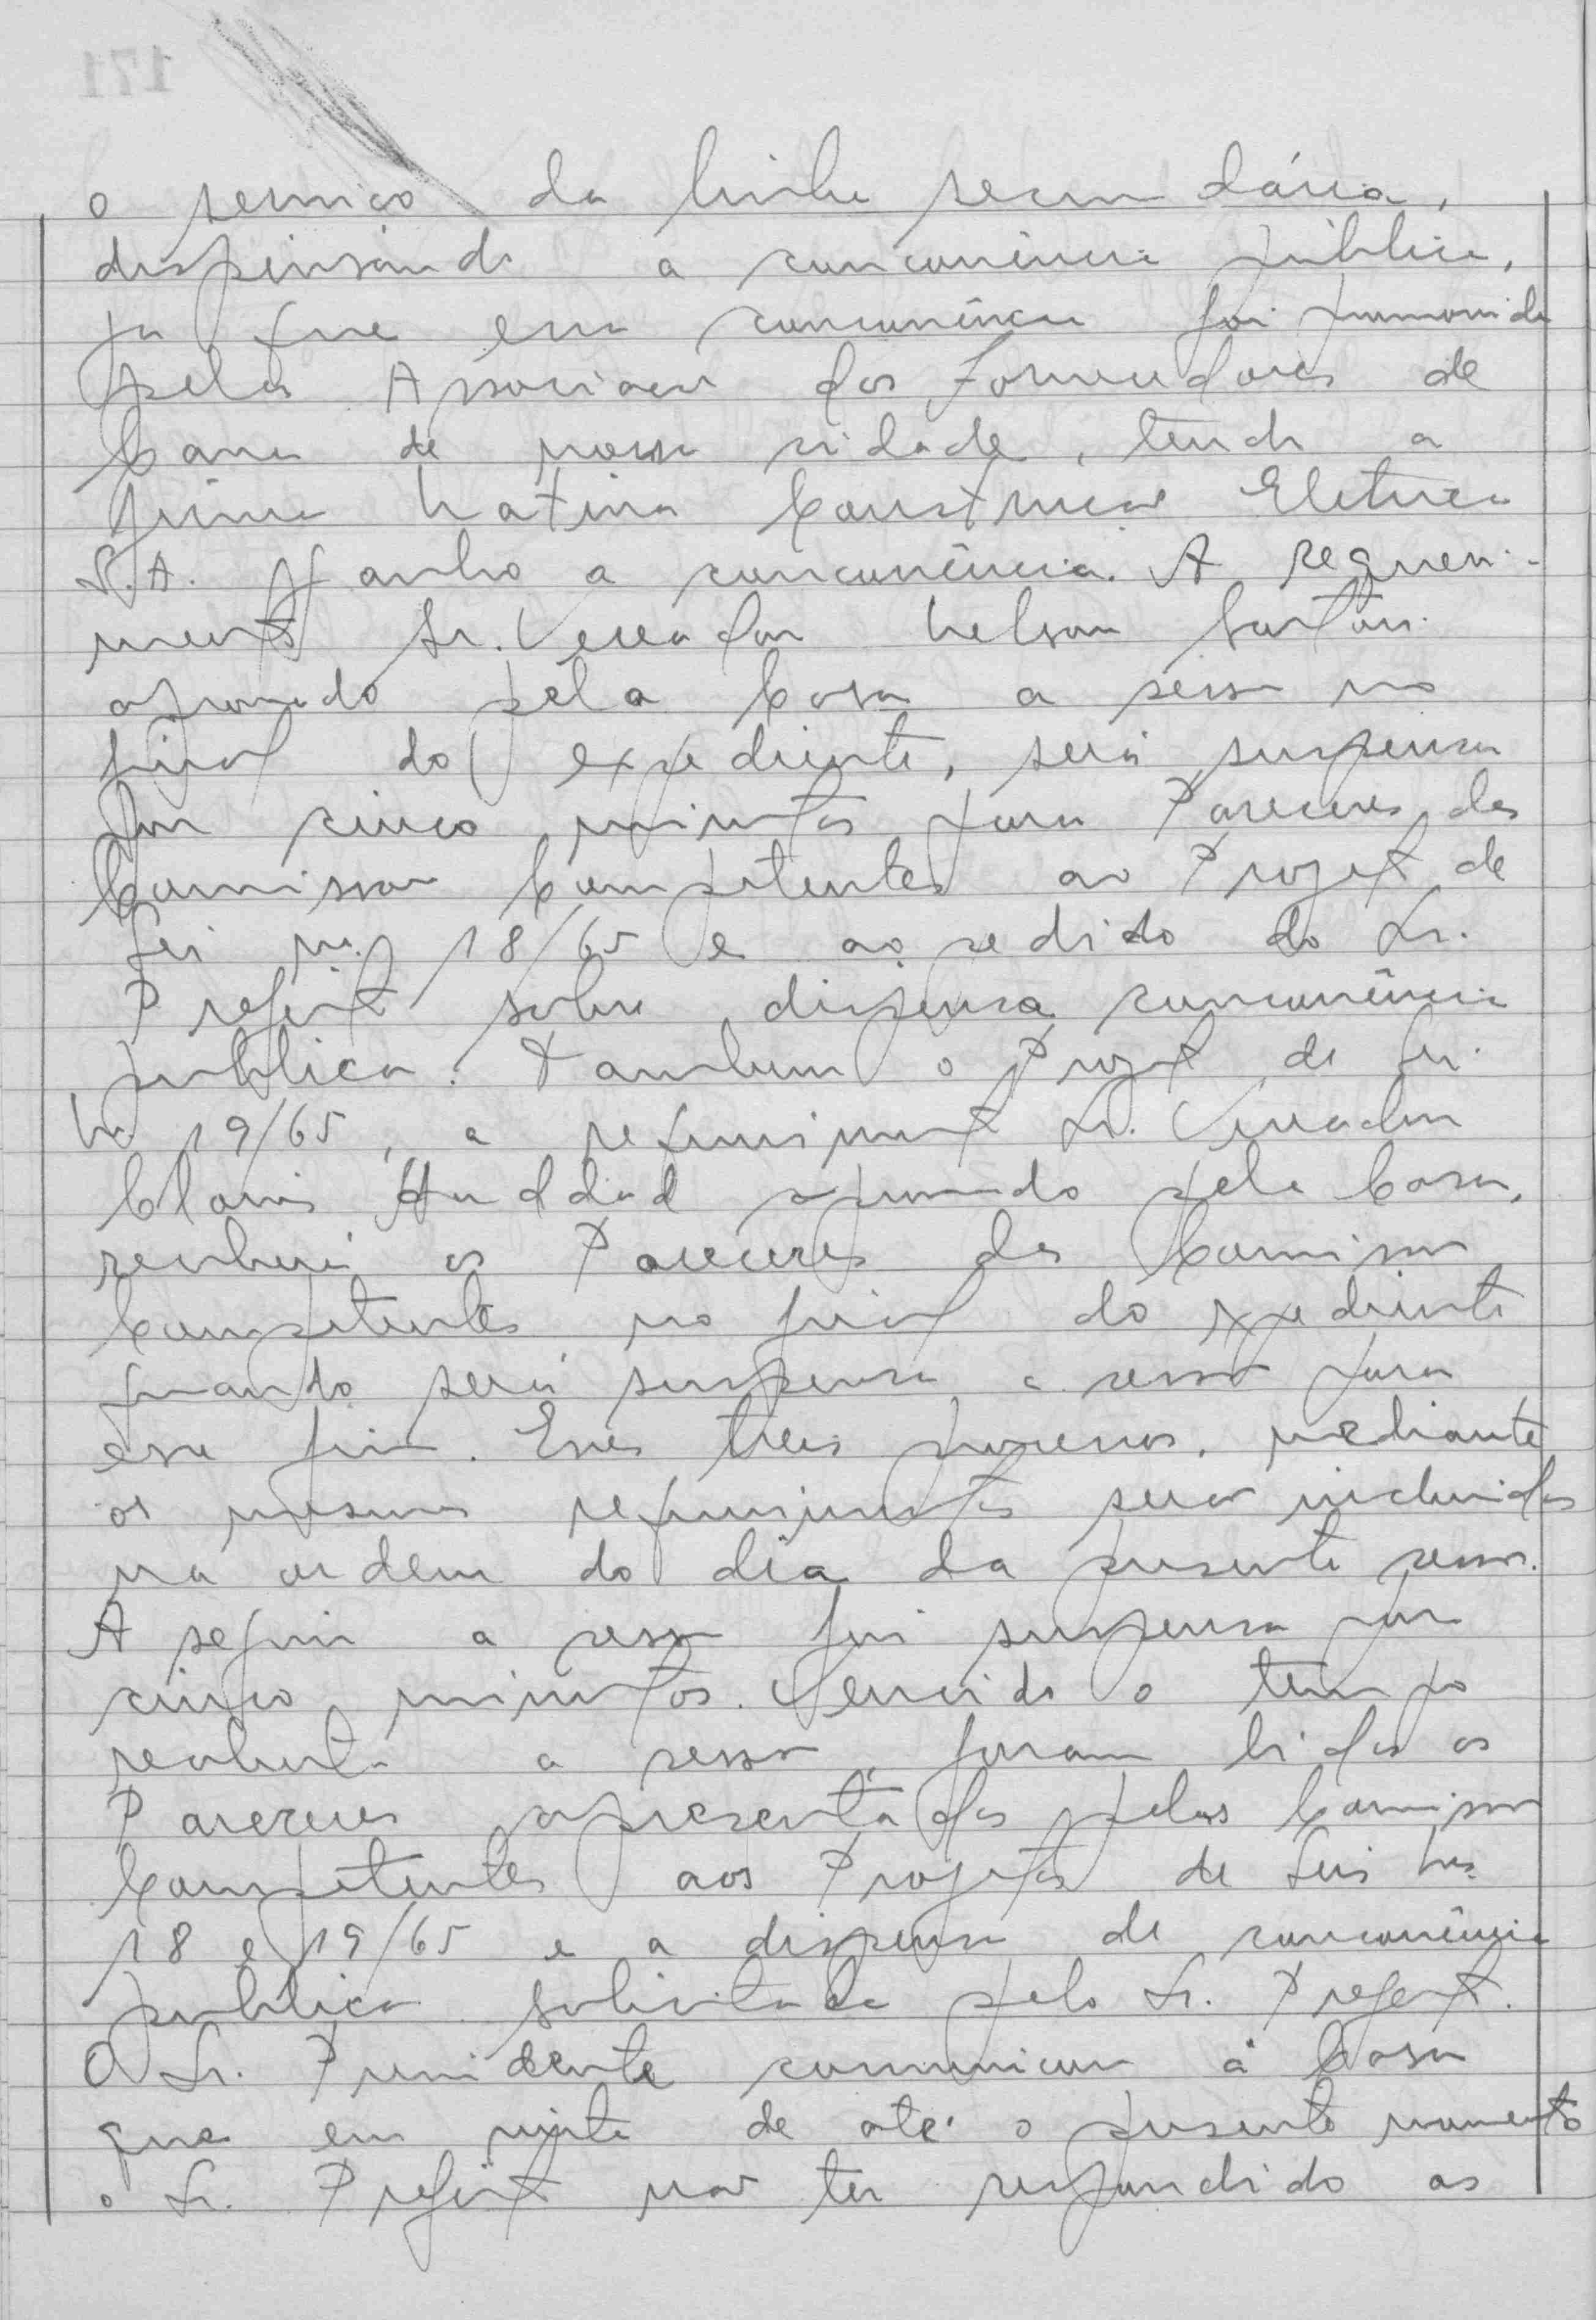 o serviço da linha secundária,
dispensando a concorrência pública,
ja que essa concorrência foi promovida
pela Associação dos Fornecedores de
Cana de nossa cidade, tendo a
firma Natina Construção Eletrica
S.A. ganho a concorrência. A requeri-
mento Sr. Vereador Nelson Sartori
aprovado pela Casa a sessão no
final do expediente, será suspensa
por cinco minutos para Pareceres das
Comissão Competentes ao Projeto de
Lei nº 18/65 e ao pedido do Sr.
Prefeito sobre dispensa concorrência
publica. Tambem o Projeto de Lei
Nº 19/65, a requerimento Sr. Vereador
Clovis Haddad aprovado pela Casa,
receberá os Pareceres das Comissão
Competentes no final do expediente
quando será suspensa a sessão para
esse fim. Esses tres processos, mediante
os mesmos requerimentos serão incluidos
na ordem do dia da presente sessão.
A seguir a sessão foi suspensa por
cinco minutos. Vencido o tempo
reaberta a sessão, foram lidos os
Pareceres apresentados pelas Comissão
Competentes aos Projetos de Leis Nos.
18 e 19/65 e a dispensa de concorrência
publica solicitada pelo Sr. Prefeito.
O Sr. Presidente comunicou à Casa
que em vista de até o presente momento
o Sr. Prefeito não ter respondido as
171